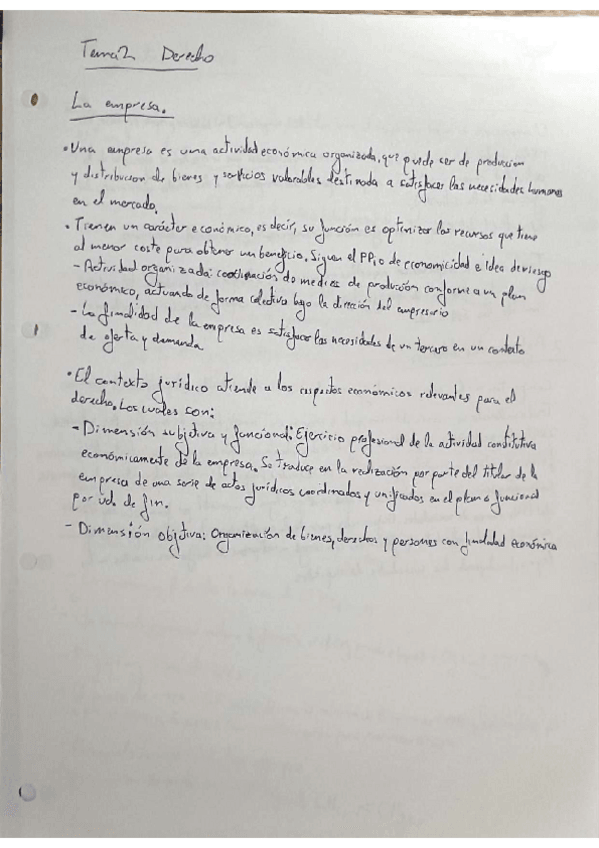 Tema 2 Derecho
La empresa.
• Una empresa es una actividad económica organizada, que puede ser de produccion
y distribucion de bienes y servicios valorables destinada a satisfacer las necesidades humanas
en el mercado.
• Tienen un carácter económico, es decir, su función es optimizar los recursos que tiene
al menor coste para obtener un beneficio. Siguen el PPio de economicidad e idea de riesgo
- Actividad organizada: coordinación de medios de producción conforme a un plan
económico, actuando de forma colectiva bajo la dirección del empresario
- La finalidad de la empresa es satisfacer las necesidades de un tercero en un contexto
de oferta y demanda
• El contexto jurídico atiende a los aspectos económicos relevantes para el
derecho. Los cuales son:
- Dimensión subjetiva y funcional: Ejercicio profesional de la actividad constitutiva
económicamente de la empresa. Se traduce en la realización por parte del titular de la
empresa de una serie de actos jurídicos coordinados y unificados en el plano funcional
por ud. de fin.
- Dimensión objetiva: Organización de bienes, derechos y personas con finalidad económica